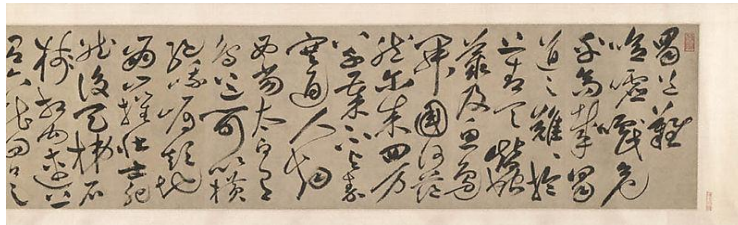 蜀道難
噫嘘嚱危
乎高哉蜀
道之難難於
上青天蠶
叢及魚鳧
開國何茫
然爾来四万
八千歲不与秦
塞通人烟
西當太白有
鳥道可以橫
絕峨嵋巔地
崩山摧壯士死
然後天梯石
棧相鉤連上
有六龍回日之